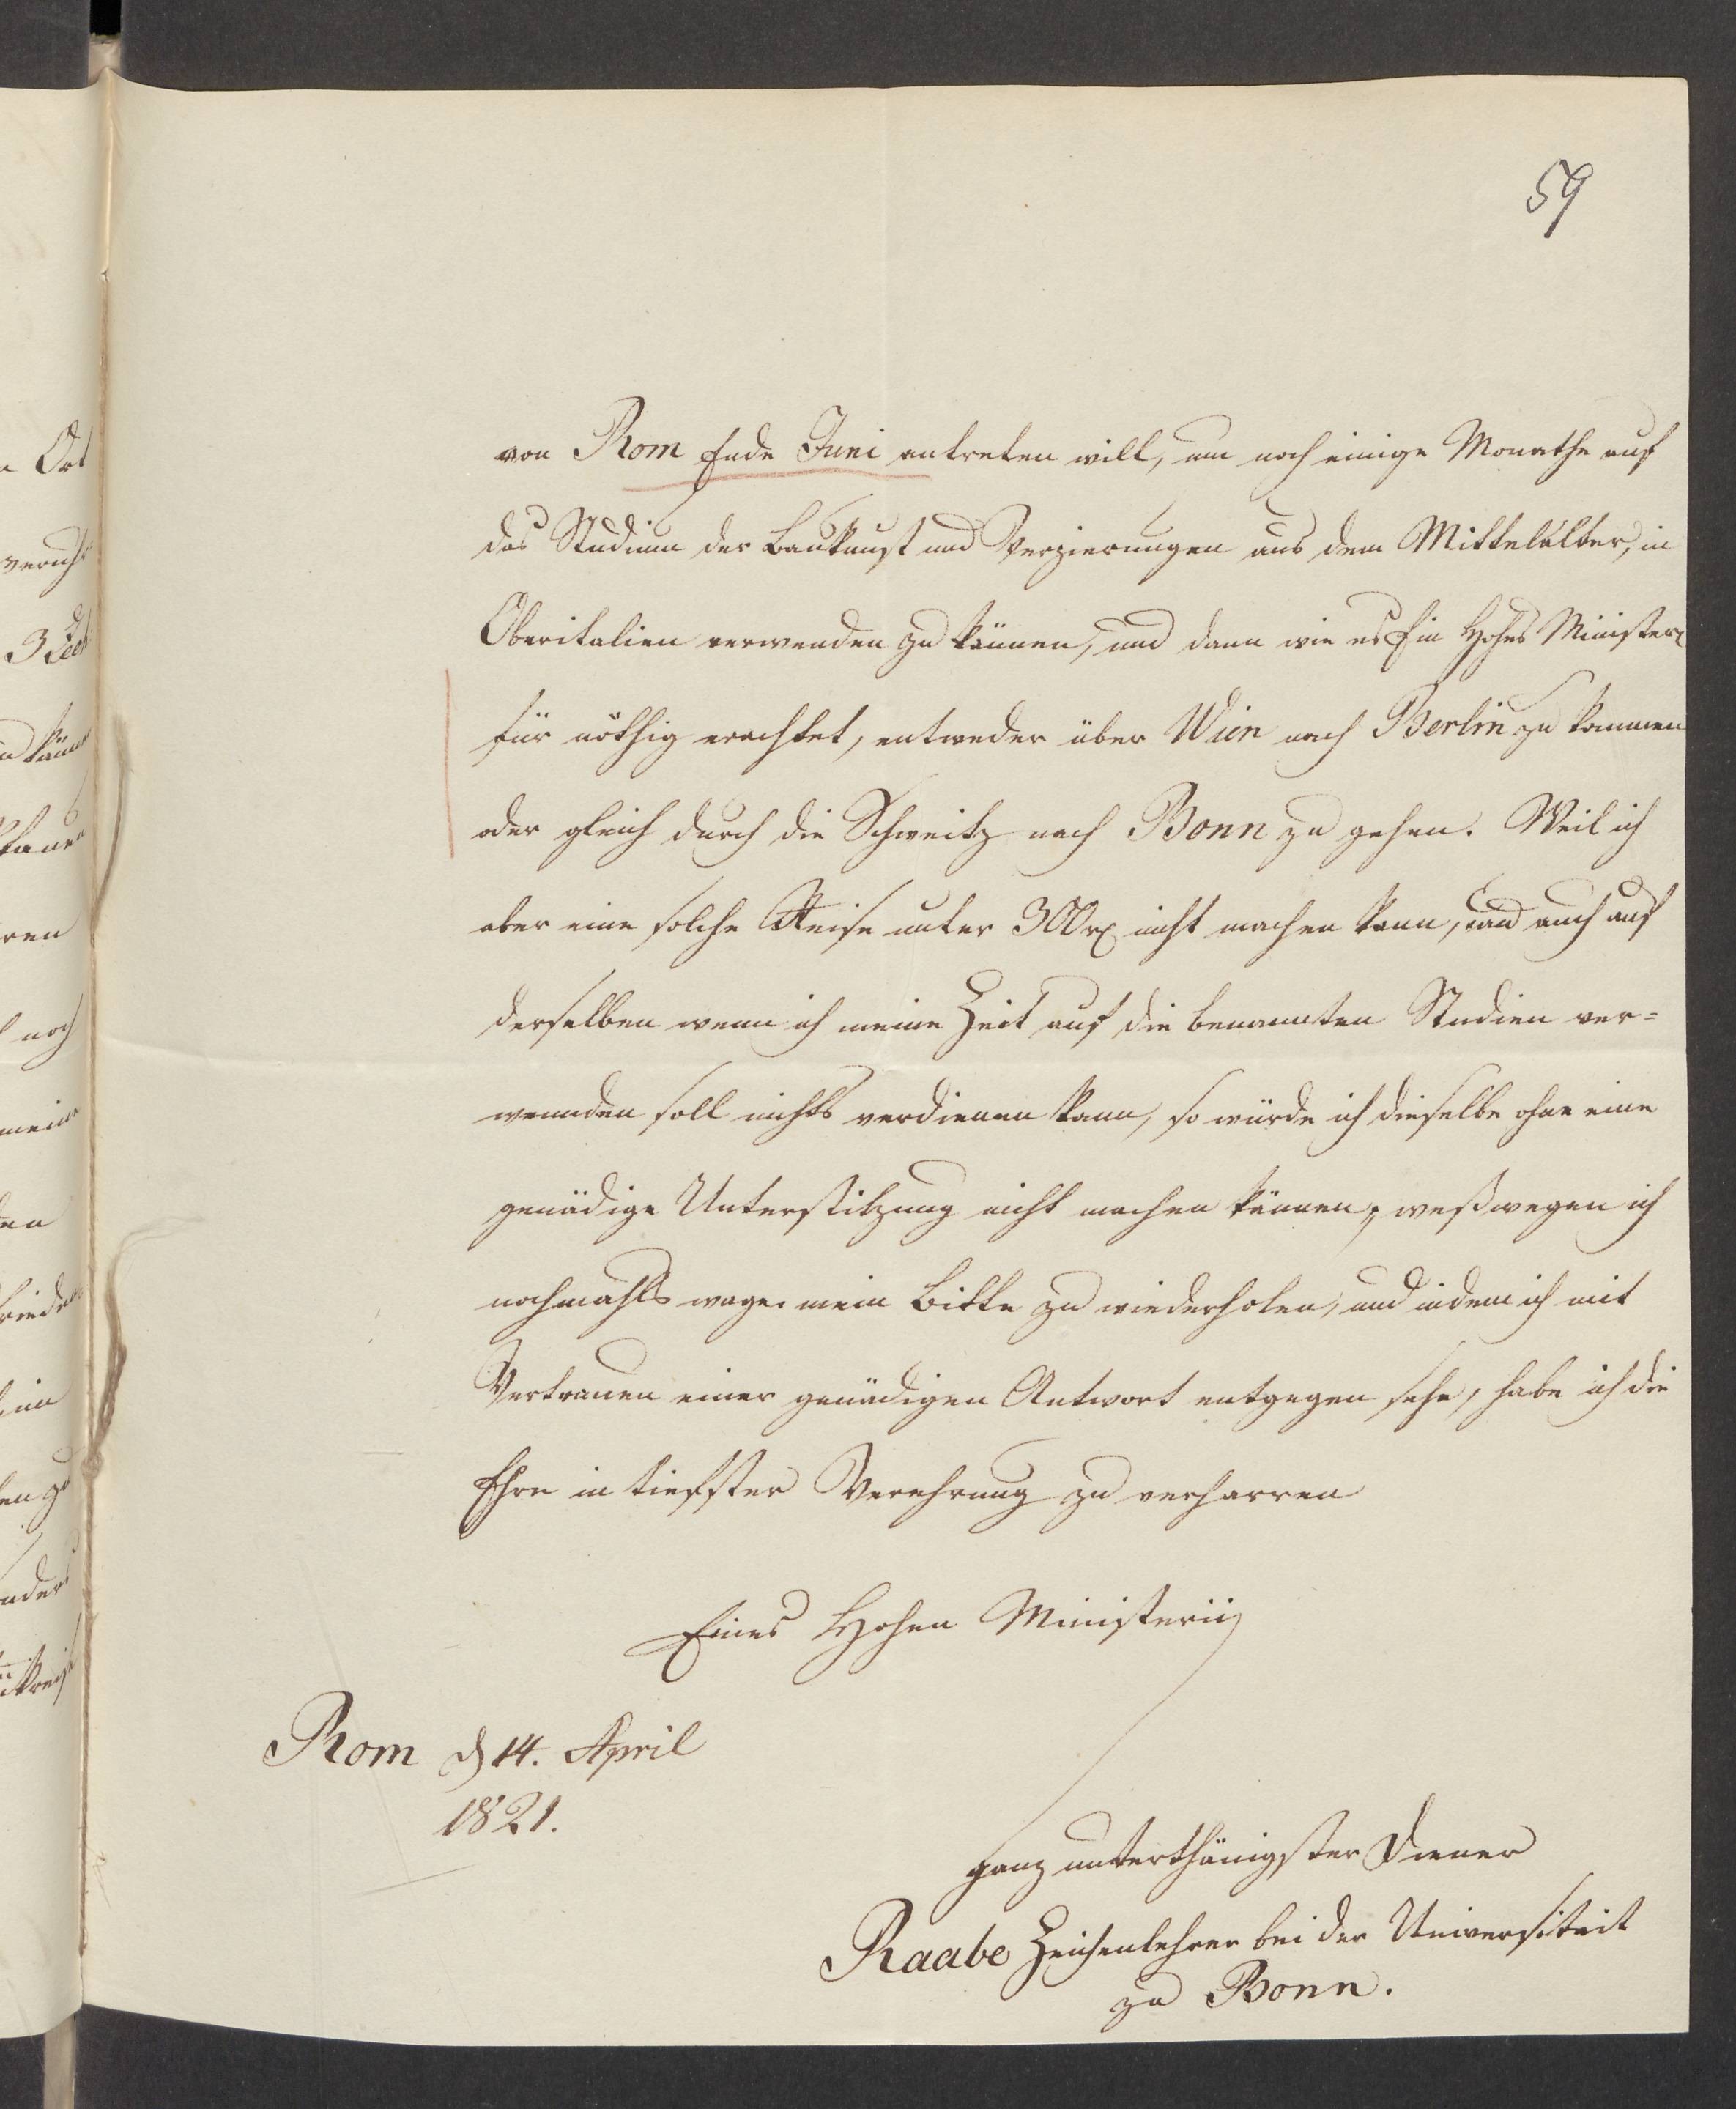 59
von Rom Ende Juni antreten will, um noch einige Monathe auf
das Studium der Baukunst und Verzierungen aus dem Mittelalter, in
Oberitalien verwenden zu können, und dann wie es Ein Hohes Minister
für nöthig erachtet, entweder über Wien nach Berlin zu kommen
oder gleich durch die Schweitz nach Bonn zu gehen. Weil ich
aber eine solche Reise unter 300 nicht machen kann, und auch auf
derselben wenn ich meine Zeit auf die benannten Studien ver=
wennden soll nichts verdienen kann, so würde ich dieselbe ohne eine
genädige Unterstitzung nicht machen können, weßwegen ich
nochmahls wage mein Bitte zu wiederholen, und indem ich mit
Vertrauen einer genädigen Antwort entgegen sehe, habe ich die
Ehre in tiefster Verehrung zu verharren
Eines Hohen Ministerii
Rom d 14. April
1821.
ganz unterthänigster Diener
Raabe Zeichenlehrer bei der Universiteit
zu Bonn.
Ort
noch